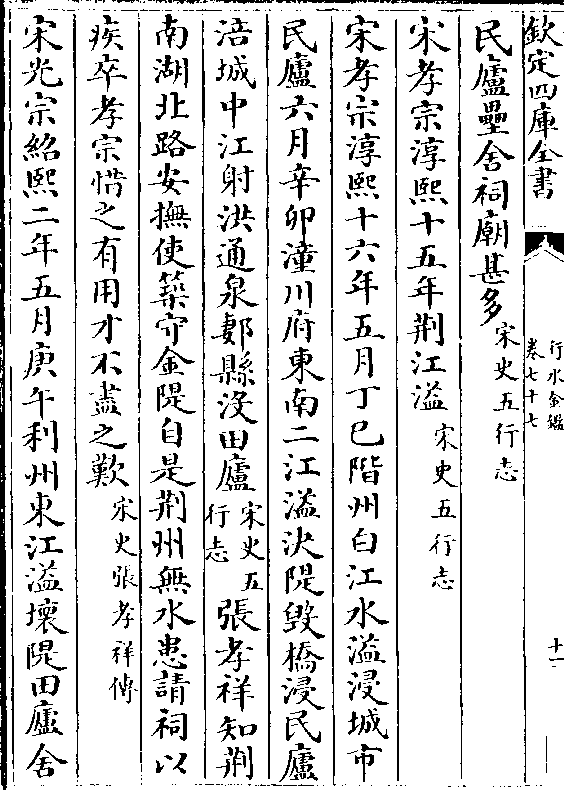 欽定四庫全書
行水金鑑
卷七十七
十一
民廬壘舍祠廟甚多宋史五行志
宋孝宗淳熙十五年荆江溢宋史五行志
宋孝宗淳熙十六年五月丁巳階州白江水溢浸城市
民廬六月辛卯潼川府東南二江溢決隄毀橋浸民廬
涪城中江射洪通泉郪縣沒田廬宋史五行志張孝祥知荆
南湖北路安撫使築守金隄自是荆州無水患請祠以
疾卒孝宗惜之有用才不盡之歎宋史張孝祥傳
宋光宗紹熙二年五月庚午利州東江溢壞隄田廬舍